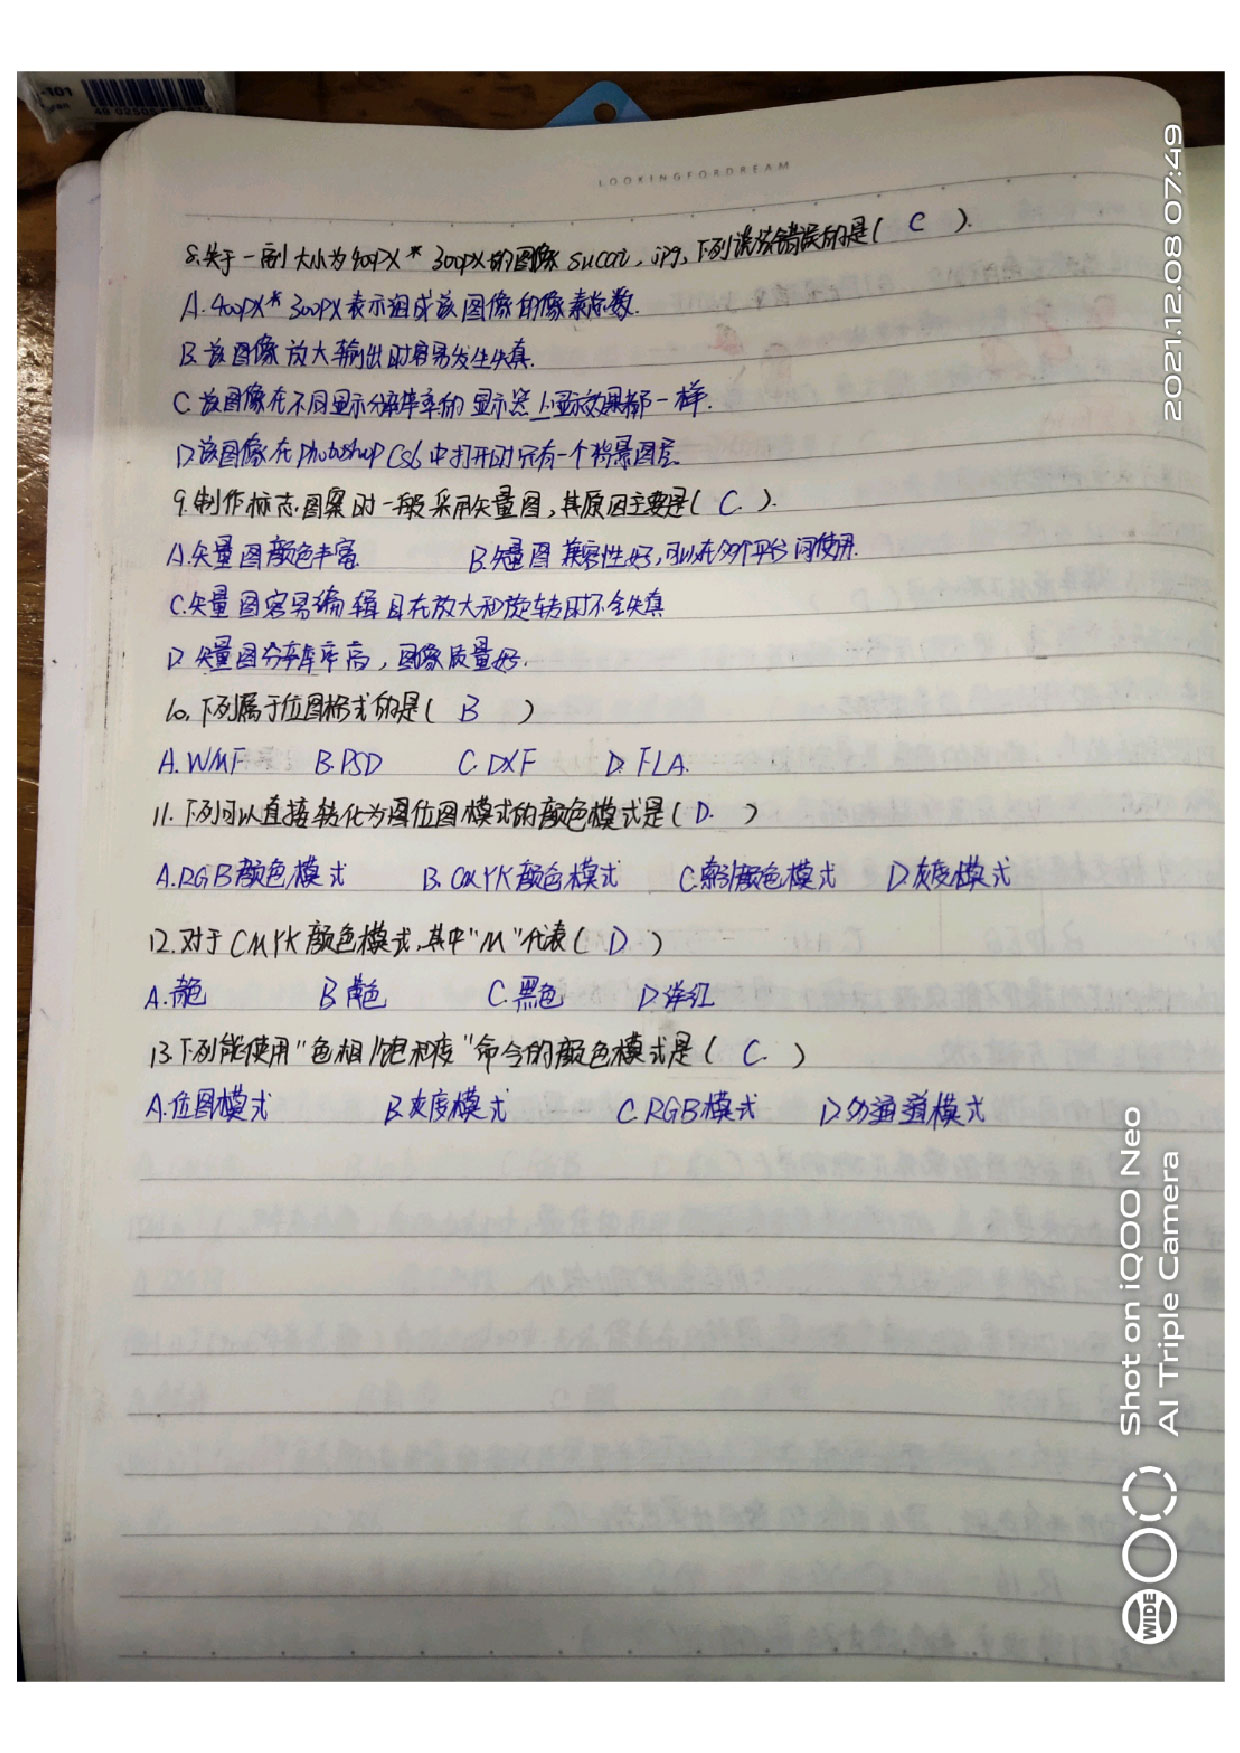 LOOKINGFORDREAM
8.关于一副大小为400PX*300PX的图像succt,jpg,下列说法错误的是( C ).
A.400PX*300PX表示组成该图像的像素总数.
B.该图像放大输出时容易发生失真.
C该图像在不同显示分辨率的显示器上显示效果都一样.
D.该图像在Photoshop CS6中打开时只有一个背景图层.
9.制作标志.图案时一般采用矢量图,其原因主要是( C. ).
A.矢量图颜色丰富. B.矢量图兼容性好,可以在多个平台间使用.
C.矢量图容易编辑且在放大和旋转时不会失真
D.矢量图分辨率高,图像质量好.
10.下列属于位图格式的是( B )
A.WMF B.PSD C.DXF D.FLA.
11.下列可以直接转化为位图模式的颜色模式是( D. )
A.RGB颜色模式 B.CMYK颜色模式 C.索引颜色模式 D.灰度模式
12.对于CMYK颜色模式,其中"M"代表( D )
A.青色 B黄色 C.黑色 D.洋红
13.下列能使用"色相/饱和度"命令的颜色模式是( C. )
A.位图模式 B.灰度模式 C.RGB模式 D.多通道模式
2021.12.08 07:49
Shot on iQOO Neo
AI Triple Camera
WIDE